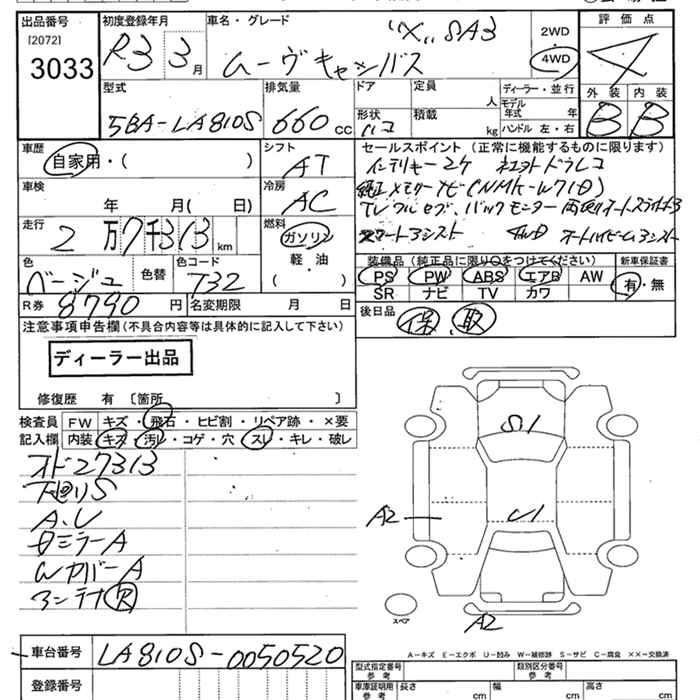 出品番号 初度登録年月 車名・グレード 評価点
[2072]
3033 R3 3月 ムーヴキャンバス "X" SA3 2WD 4WD 4
型式 排気量 ドア 定員 人 ディーラー・並行 外装 内装
5BA-LA810S 660cc 形状 ハコ 積載 kg モデル年式 年 ハンドル 左・右 B B
車歴 自家用・( ) シフト AT セールスポイント (正常に機能するものに限ります)
インテリキー2ケ ネエヨトドラレコ
車検 年 月( 日) 冷房 AC
純正メモリーナビ(NMK-W71D)
TV フルセグ、バックモニター 両側オートスライド
走行 2万7千313km 燃料 ガソリン 軽・油 ( )
スマートアシスト 4WD オートハイビームアシスト
色 ベージュ 色替 色コード T32
装備品 (純正品に限り○をつけてください) 新車保証書
PS PW ABS エアB AW 有・無
SR ナビ TV カワ
R券 8790円 名変期限 月 日 後日品 保、取
注意事項申告欄 (不具合内容等は具体的に記入して下さい)
ディーラー出品
修復歴 有 〔箇所 〕
検査員 FW キズ・飛石・ヒビ割・リペア跡・×要
記入欄 内装 キズ・汚レ・コゲ・穴・スレ・キレ・破レ
オド27313
下廻りS
A.U
ミラーA
WカバーA
コンテナ R
S1
A2 U1
A2
スペア
A－キズ E－エクボ U－凹み W－補修跡 S－サビ C－腐食 ××－交換済
車台番号 LA810S-0050520
型式指定番号 参考 類別区分番号 参考
登録番号 車庫証明用 参考 長さ cm 幅 cm 高さ cm